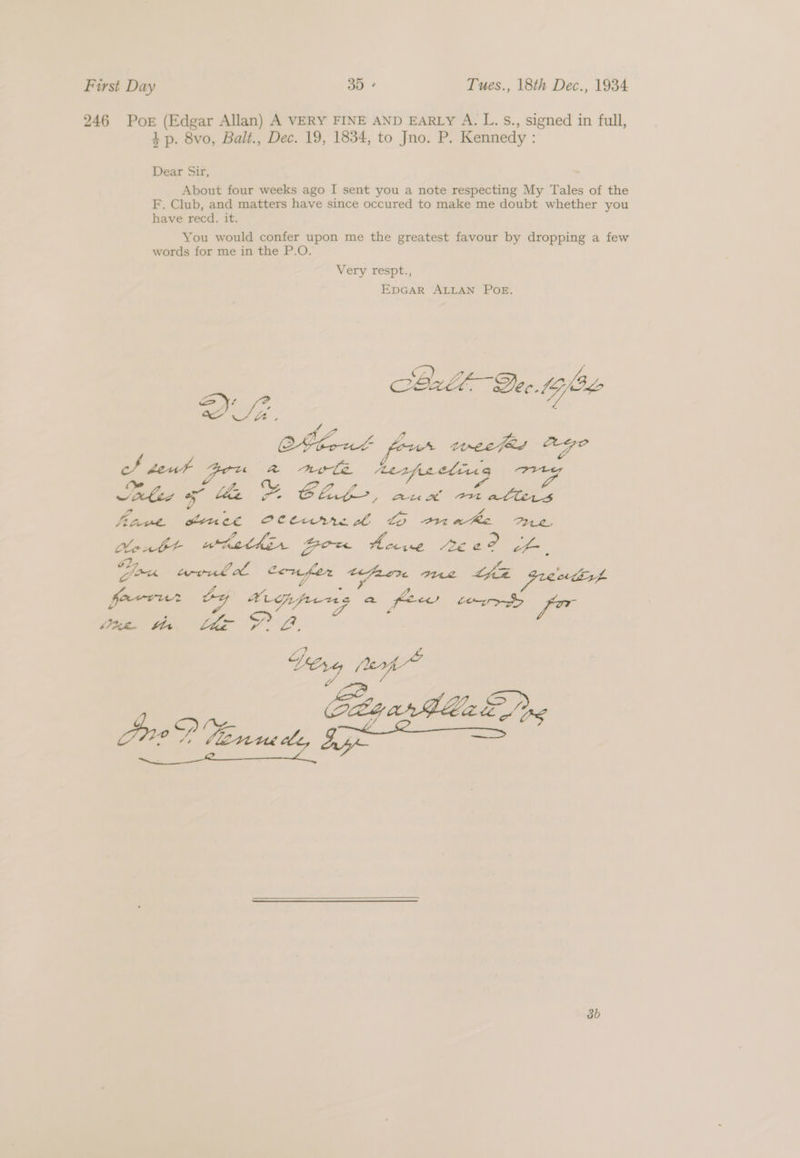 First Day 35 Tues., 18th Dec., 1934
246 POE (Edgar Allan) A VERY FINE AND EARLY A. L. S., signed in full,
½ p. 8vo, Balt., Dec. 19, 1834, to Jno. P. Kennedy :
Dear Sir,
About four weeks ago I sent you a note respecting My Tales of the
F. Club, and matters have since occured to make me doubt whether you
have recd. it.
You would confer upon me the greatest favour by dropping a few
words for me in the P.O.
Very respt.,
EDGAR ALLAN POE.
Balt. Dec. 19/34
D. Sir.
About four weeks ago
I sent you a note respecting my
Tales of the F. Club, and matters
have since occurred to make me
doubt whether you have recd it.
You would confer upon me the greatest
favour by dropping a few words for
me in the P. O.
Very respt
Edgar Allan Poe
Jno P. Kennedy Esqr
3b